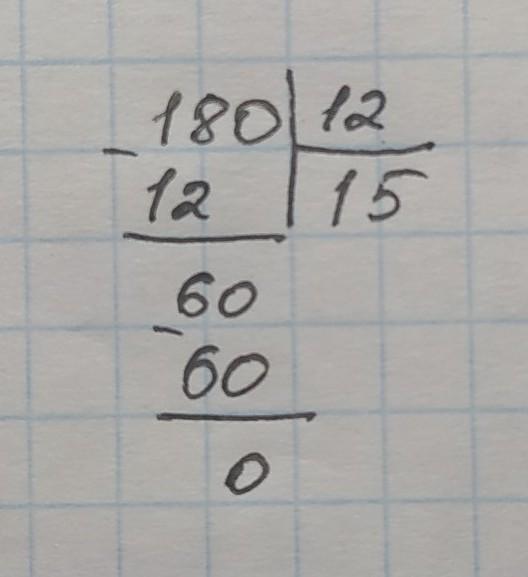 180 | 12
- 12 | 15
60
- 60
0